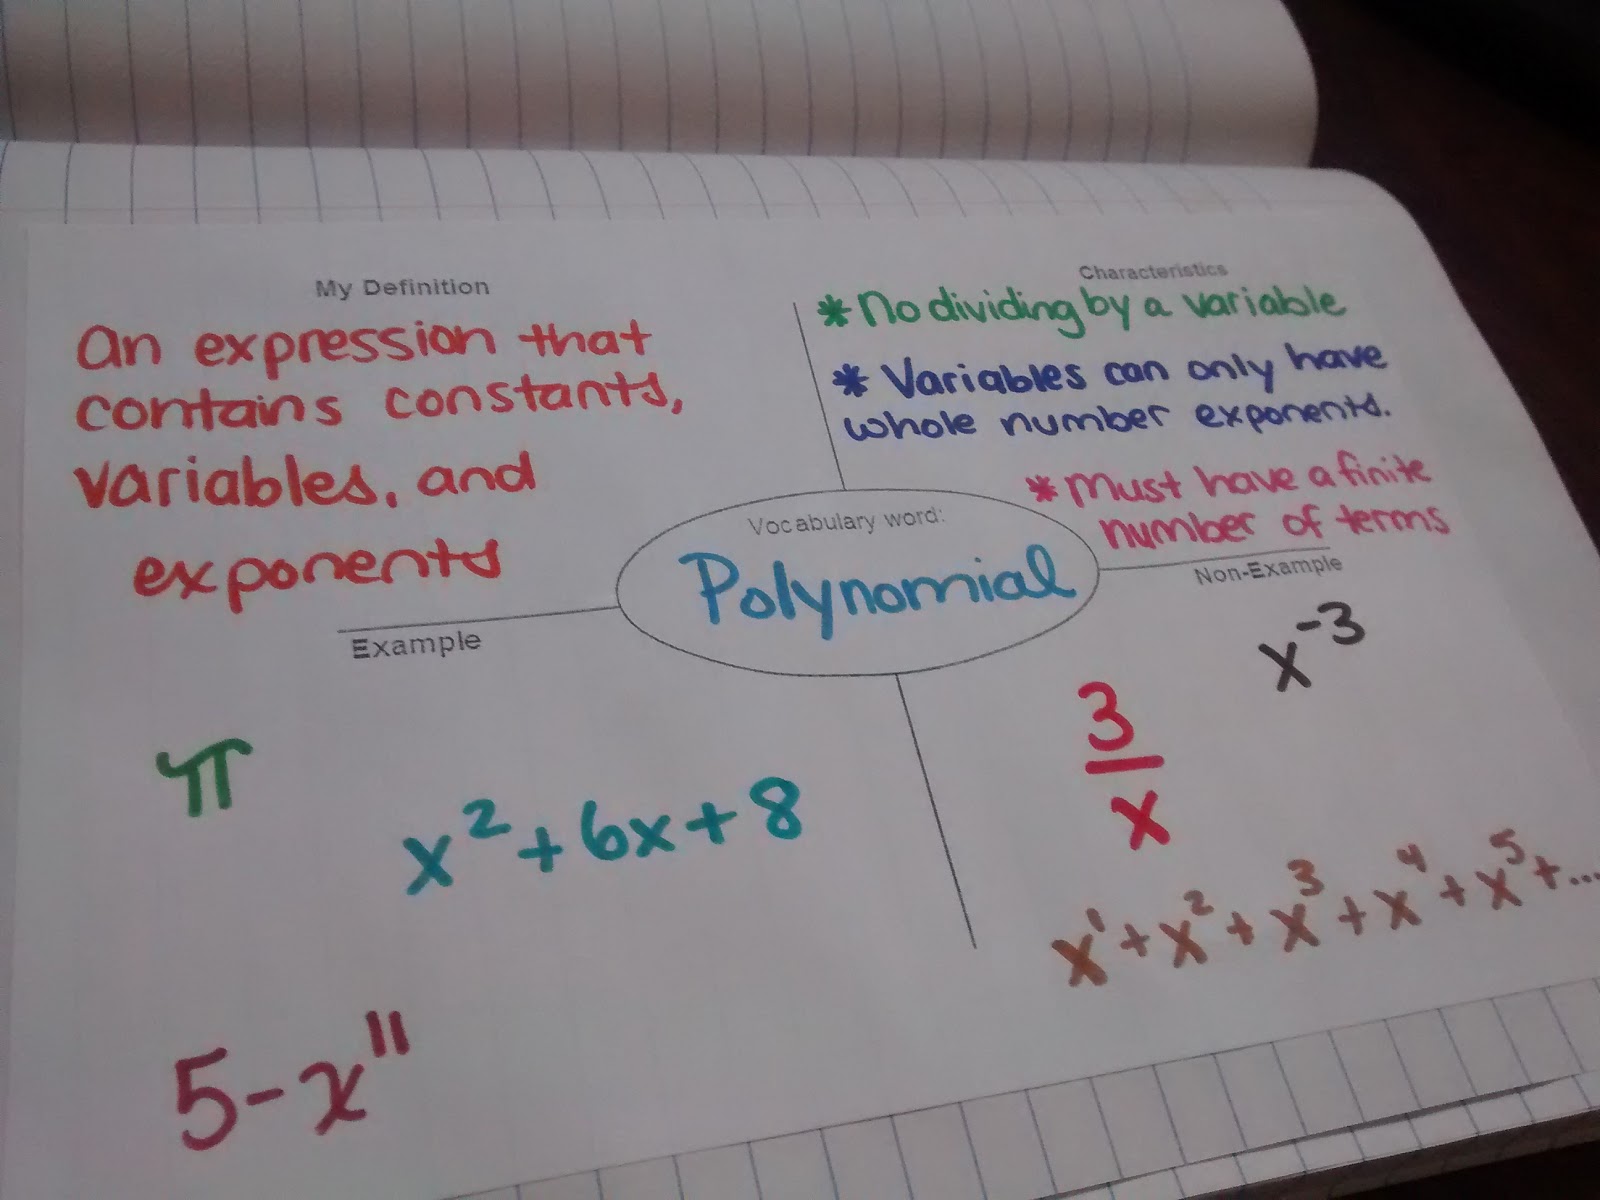 My Definition
An expression that
contains constants,
variables, and
exponents
Characteristics
* No dividing by a variable
* Variables can only have
whole number exponents.
* Must have a finite
number of terms
Vocabulary word:
Polynomial
Example
π
x² + 6x + 8
5 - x¹¹
Non-Example
x⁻³
3
x
x¹ + x² + x³ + x⁴ + x⁵ + ...